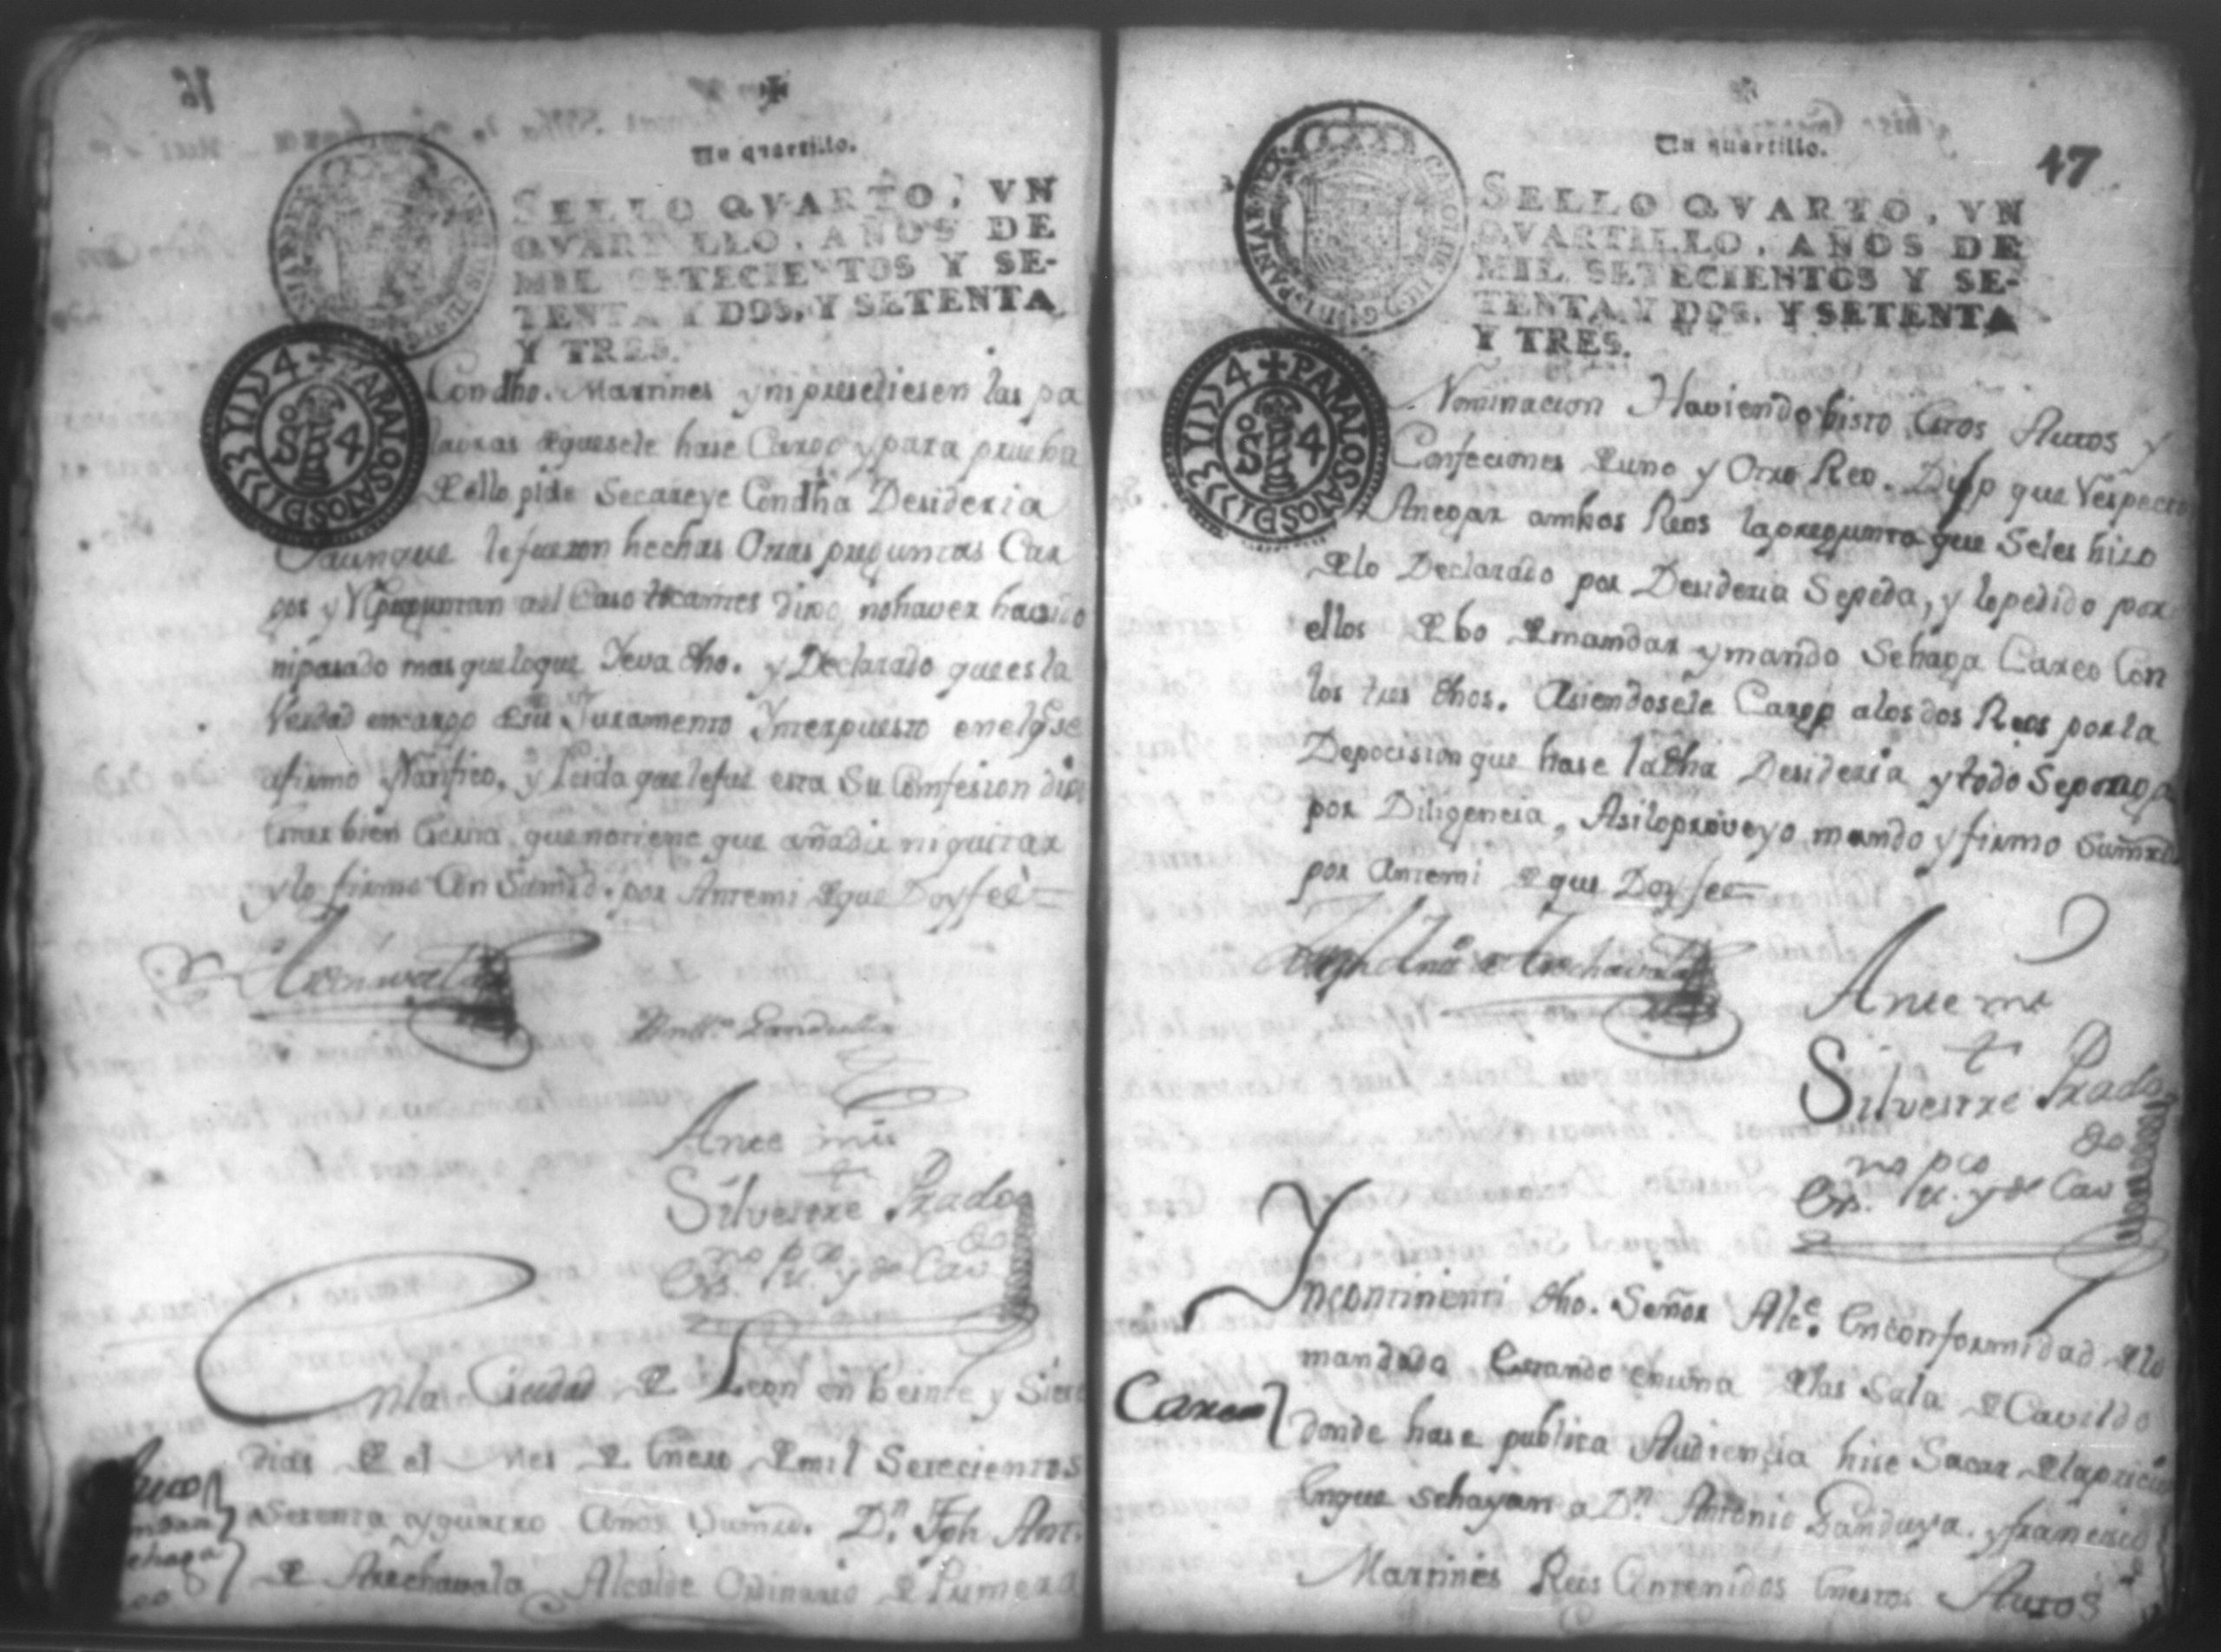 Un quartillo.
SELLO QVARTO, VN
QVARTILLO, AÑOS DE
MIL SETECIENTOS Y SE-
TENTA Y DOS, Y SETENTA
Y TRES.
PARA LOS AÑOS DE 1774
Sº 4
Con dho. Martines y ni presediesen las pa
lauras de que sele hase Cargo y para prueba
de ello pide Se caree Con dha Desideria
Y aunque le fueron hechas Otras preguntas Car
gos y Repreguntas al Caso tocantes dixo no haver havido
ni pasado mas que lo que lleva dho. y Declarado que es la
Verdad en cargo de su Juramento Ynterpuesto en el qe. se
afirmo y Ratifico, y leida que le fue esta Su Confesion dixo
estar bien Cierta, que no tiene que añadir ni quitar
y lo firmo Con Sumrd. por Antemi de que Doy fee =
Arechavala
Antto. Landulla
Ante mi
Silvestre Prado
Essno. pco. Rl. y de Cavdo
En la Ciudad de Leon en beinte y Siete
dias de el mes de Enero de mil Setecientos
Setenta y quatro Años Sumrd. Dn. Jph Antt.
de Arechavala Alcalde Ordinario de Primera
Auto
17
Un quartillo.
SELLO QVARTO, VN
QVARTILLO, AÑOS DE
MIL SETECIENTOS Y SE-
TENTA Y DOS, Y SETENTA
Y TRES.
CAROLUS III D G HISPANIAR REX
PARA LOS AÑOS DE 1774
Sº 4
Nominacion Haviendo bisto Estos Autos y
Confeciones de uno y Otro Reo. Dijo que Respecto
A negar ambos Reos la pregunta que Seles hizo
de lo Declarado por Desideria Sepeda, y lo pedido por
ellos Debo de mandar y mando Se haga Careo Con
los tres dhos. Asiendosele Cargo a los dos Reos por la
Deposision que hase la dha Desideria y todo Se ponga
por Diligencia, Asi lo proveyo mando y firmo Sumrd.
por Antemi de que Doy fee =
Joseph Antto. de Arechavala
Ante mi
Silvestre Prado
Essno. pco. Rl. y de Cavdo
Yncontinenti dho. Señor Alce. En conformidad de lo
mandado Estando en una de las Sala de Cavildo
Careo
donde hase publica Audiencia hise Sacar de la pricion
En que se hayan a Dn. Antonio Landuya. y francisco
Martines Reos Contenidos En estos Autos